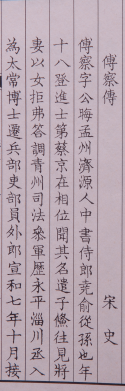 傅察傳
宋史
傅察字公晦孟州濟源人中書侍郎堯俞從孫也年
十八登進士第蔡京在相位聞其名遣子鯈往見將
妻以女拒弗答調青州司法參軍歷永平淄川丞入
為太常博士遷兵部吏部員外郎宣和七年十月接